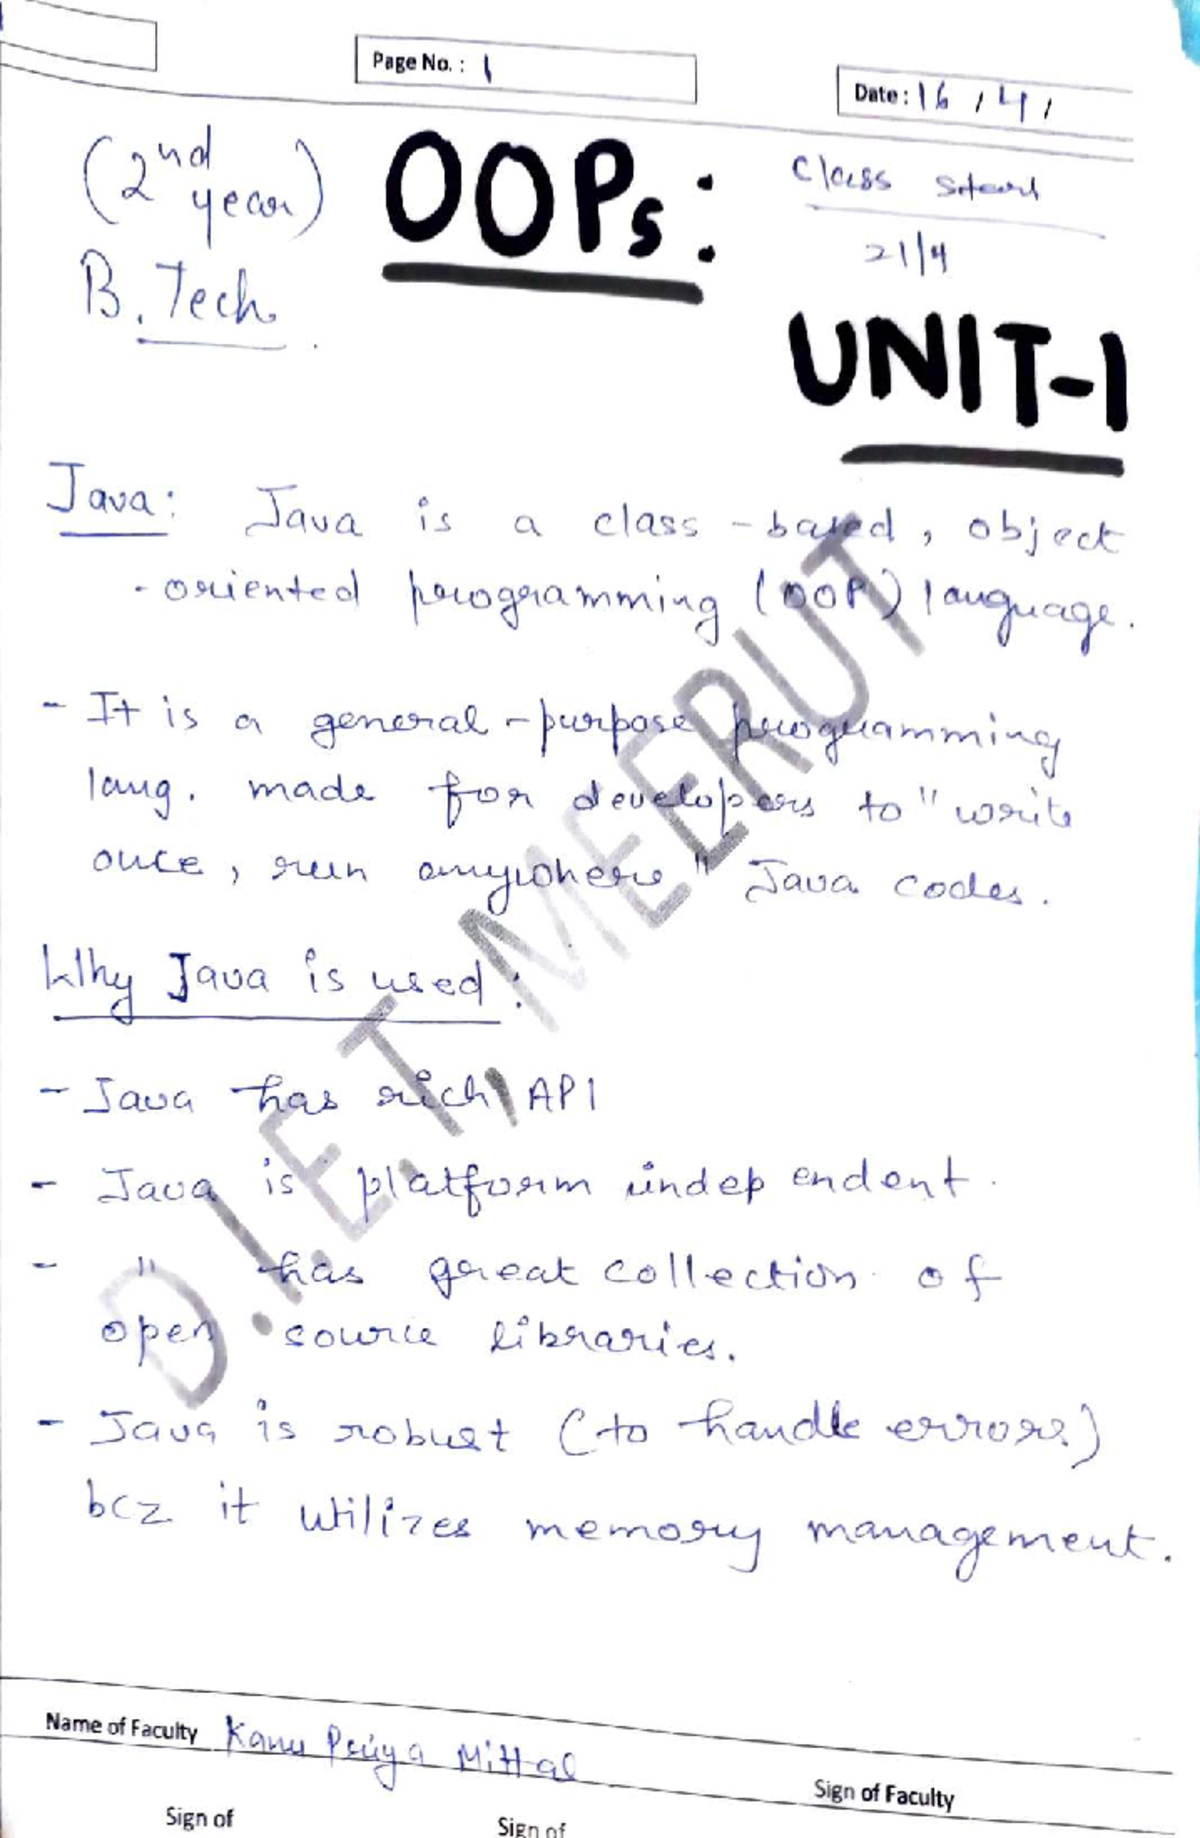 Page No. : 1
Date : 16 / 4 /
(2nd year)
B. Tech.
OOPs:
Class Start
21/4
UNIT-1
Java: Java is a class-based, object
-oriented programming (OOP) language.
- It is a general-purpose programming
lang. made for developers to "write
once, run anywhere" Java codes.
Why Java is used:
- Java has rich API
- Java is platform independent.
- " has great collection of
open source libraries.
- Java is robust (to handle errors)
bcz it utilizes memory management.
D.I.E.T, MEERUT
Name of Faculty Kanu Priya Mittal
Sign of Faculty
Sign of
Sign of